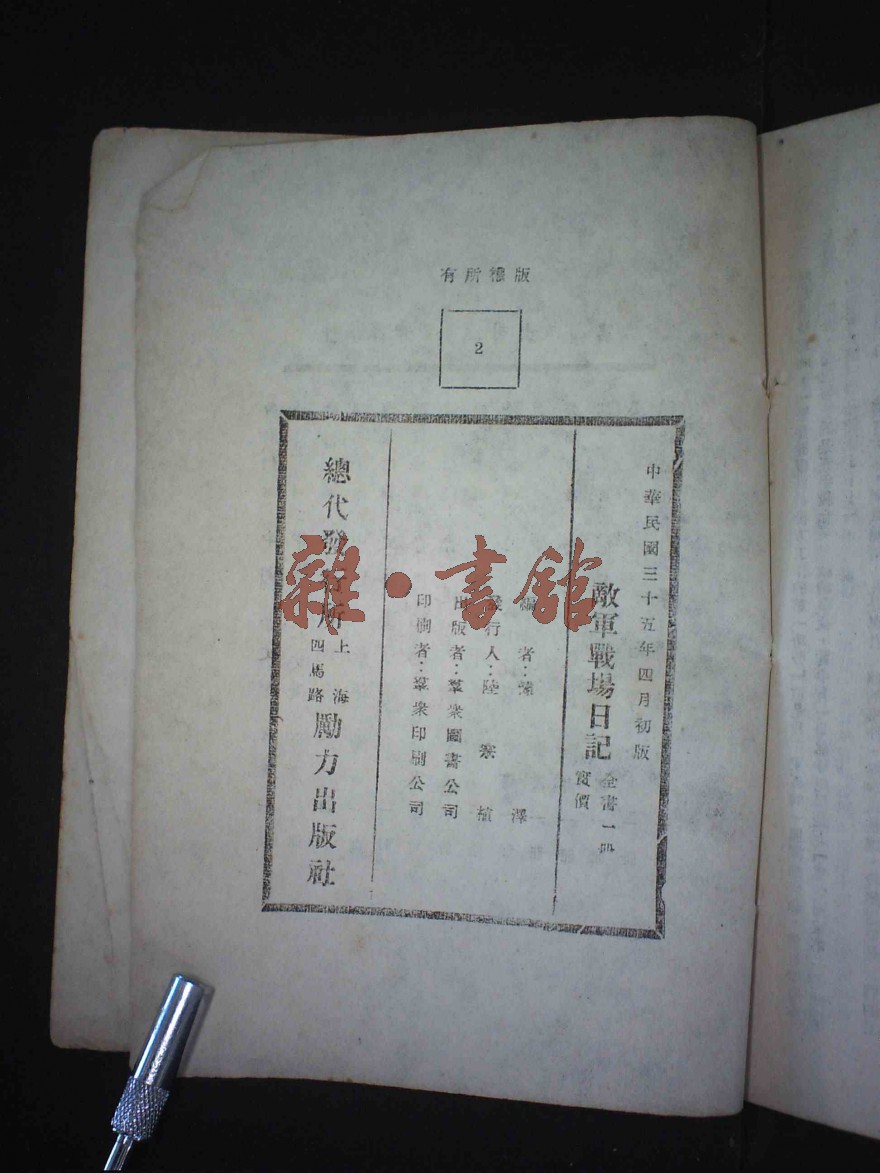 版權所有
2
中華民國三十五年四月初版
敵軍戰場日記
全書一冊
實價
編者： 澤
發行人：陸宗植
出版者：羣衆圖書公司
印刷者：羣衆印刷公司
總代發行所
上海
四馬路
勵力出版社
雜·書館